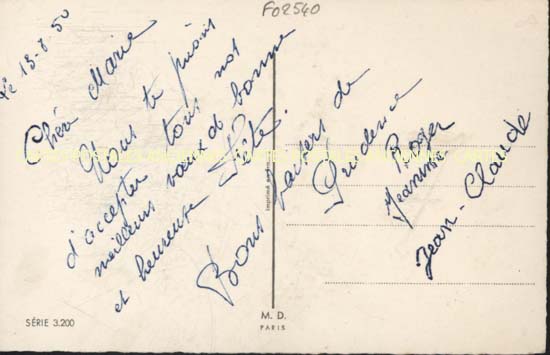 F02540
Le 13-8-50
Chère Marie
Nous te prions
d'accepter tous nos
meilleurs voeux de bonne
et heureuse Fête.
Bons baisers de
Prudence
Roger
Jeannine
Jean-Claude
Imprimé
SÉRIE 3.200
M. D.
PARIS